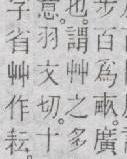 步百為畝。廣
也。謂艸之多
意。羽文切。十
字省艸作耘。